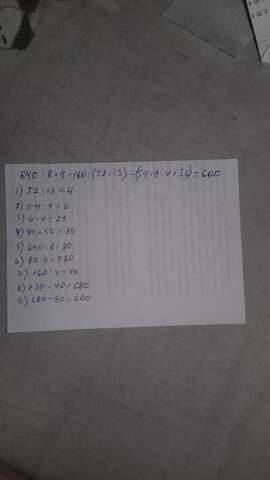 640 : 8 • 9 - 160 : (52 : 13) - (54 : 9 · 4 + 56) = 600
1) 52 : 13 = 4
2) 54 : 9 = 6
3) 6 · 4 = 24
4) 24 + 56 = 80
5) 640 : 8 = 80
6) 80 · 9 = 720
7) 160 : 4 = 40
8) 720 - 40 = 680
9) 680 - 80 = 600